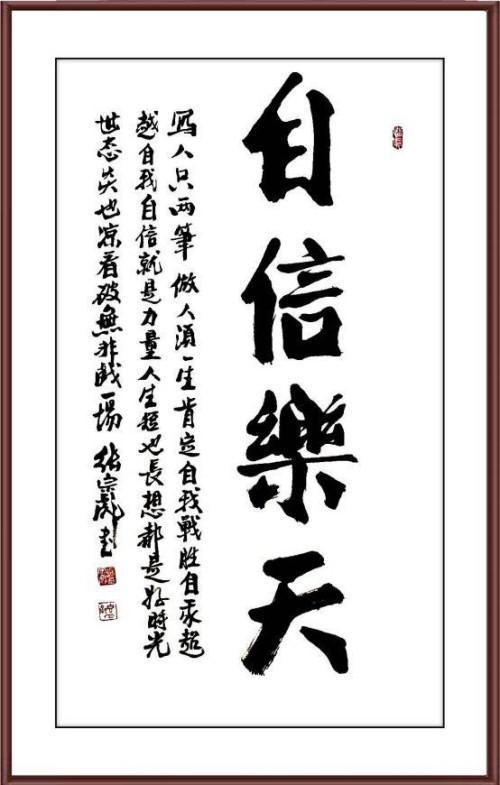 自信樂天
寫人只兩筆 做人須一生肯定自我戰胜自我超
越自我自信就是力量人生短也長想都是好時光
世态炎也凉看破無非戲一場